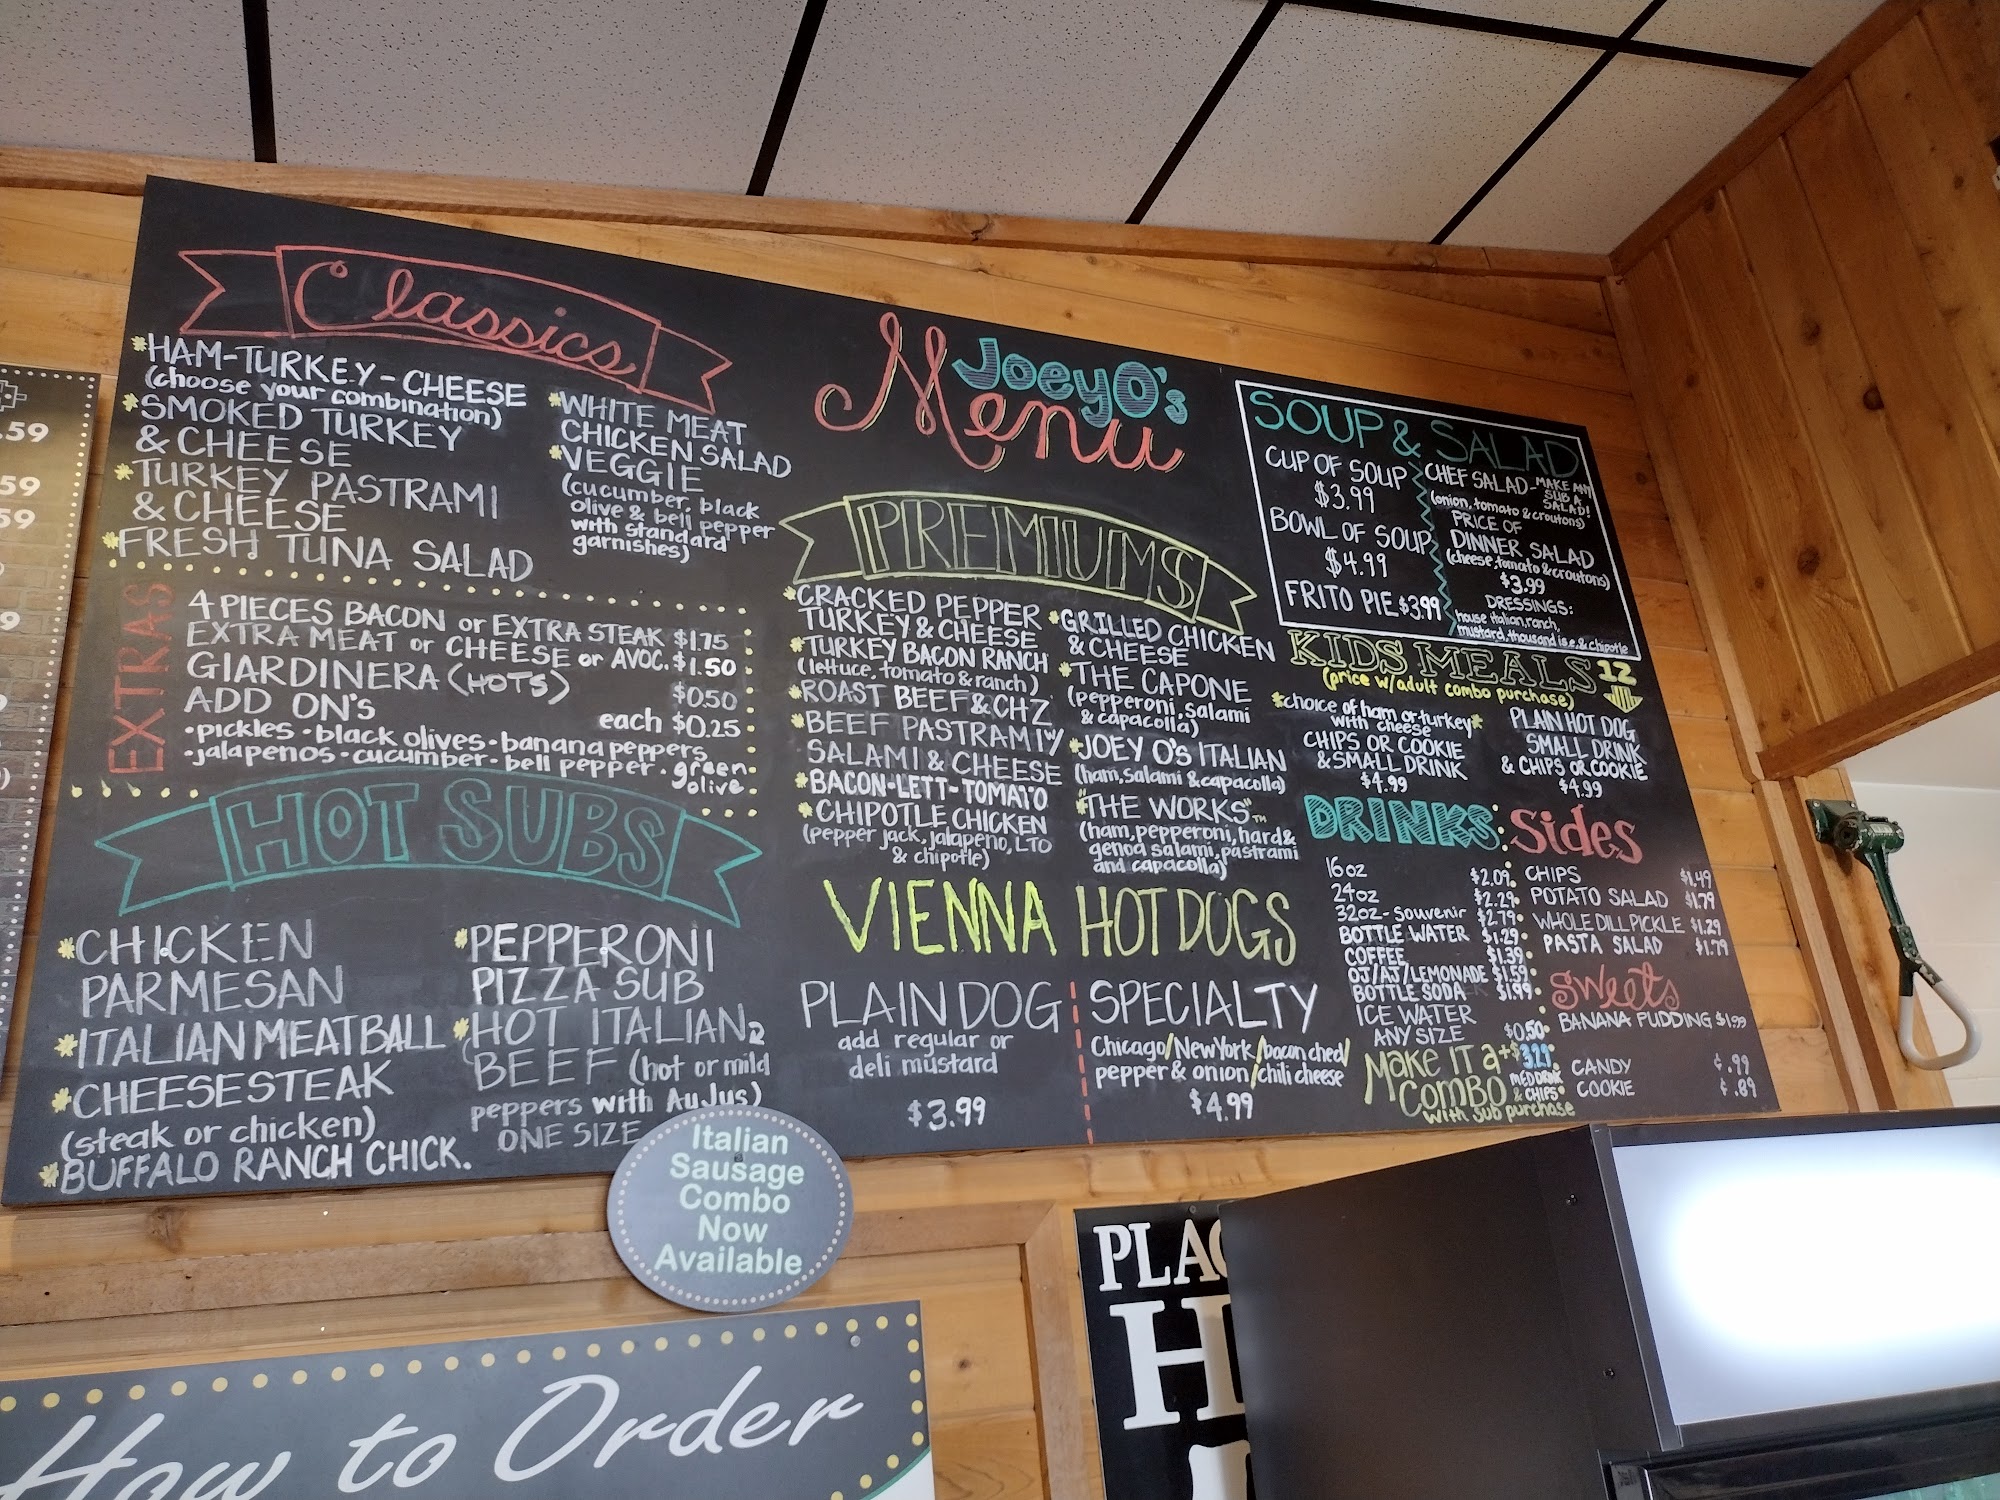 .59
59
59
9
Classics
*HAM-TURKEY-CHEESE
(choose your combination)
*SMOKED TURKEY
& CHEESE
*TURKEY PASTRAMI
& CHEESE
*FRESH TUNA SALAD
*WHITE MEAT
CHICKEN SALAD
*VEGGIE
(cucumber, black
olive & bell pepper
with standard
garnishes)
EXTRAS
4 PIECES BACON or EXTRA STEAK $1.75
EXTRA MEAT or CHEESE or AVOC. $1.50
GIARDINERA (HOTS) $0.50
ADD ON'S each $0.25
•pickles •black olives •banana peppers
•jalapenos •cucumber •bell pepper •green
olive
HOT SUBS
*CHICKEN
PARMESAN
*ITALIAN MEATBALL
*CHEESESTEAK
(steak or chicken)
*BUFFALO RANCH CHICK.
*PEPPERONI
PIZZA SUB
*HOT ITALIAN
BEEF (hot or mild
peppers with AuJus)
ONE SIZE
JoeyO's
Menu
PREMIUMS
*CRACKED PEPPER
TURKEY & CHEESE
*TURKEY BACON RANCH
(lettuce, tomato & ranch)
*ROAST BEEF & CHZ
*BEEF PASTRAMI w/
SALAMI & CHEESE
*BACON-LETT-TOMATO
*CHIPOTLE CHICKEN
(pepper jack, jalapeno, LTO
& chipotle)
*GRILLED CHICKEN
& CHEESE
*THE CAPONE
(pepperoni, salami
& capacolla)
*JOEY O'S ITALIAN
(ham, salami & capacolla)
*"THE WORKS"™
(ham, pepperoni, hard &
genoa salami, pastrami
and capacolla)
VIENNA HOT DOGS
PLAIN DOG
add regular or
deli mustard
$3.99
SPECIALTY
Chicago/New York/bacon ched/
pepper & onion/chili cheese
$4.99
SOUP & SALAD
CUP OF SOUP
$3.99
BOWL OF SOUP
$4.99
FRITO PIE $3.99
CHEF SALAD - MAKE ANY
SUB A
SALAD!
(onion, tomato & croutons)
PRICE OF
DINNER SALAD
(cheese, tomato & croutons)
$3.99
DRESSINGS:
house italian, ranch,
mustard, thousand is.e. & chipotle
KIDS MEALS 12
(price w/adult combo purchase)
*choice of ham or turkey*
with cheese
CHIPS OR COOKIE
& SMALL DRINK
$4.99
PLAIN HOT DOG
SMALL DRINK
& CHIPS OR COOKIE
$4.99
DRINKS
16oz $2.09
24oz $2.29
32oz - souvenir $2.79
BOTTLE WATER $1.29
COFFEE $1.39
OJ/AJ/LEMONADE $1.59
BOTTLE SODA $1.99
ICE WATER
ANY SIZE $0.50
MAKE IT a +$
COMBO MED DRINK
& CHIPS
with sub purchase
Sides
CHIPS $1.49
POTATO SALAD $1.79
WHOLE DILL PICKLE $1.29
PASTA SALAD $1.79
Sweets
BANANA PUDDING $1.99
CANDY ¢.99
COOKIE ¢.89
Italian
Sausage
Combo
Now
Available
How to Order
PLAC
H